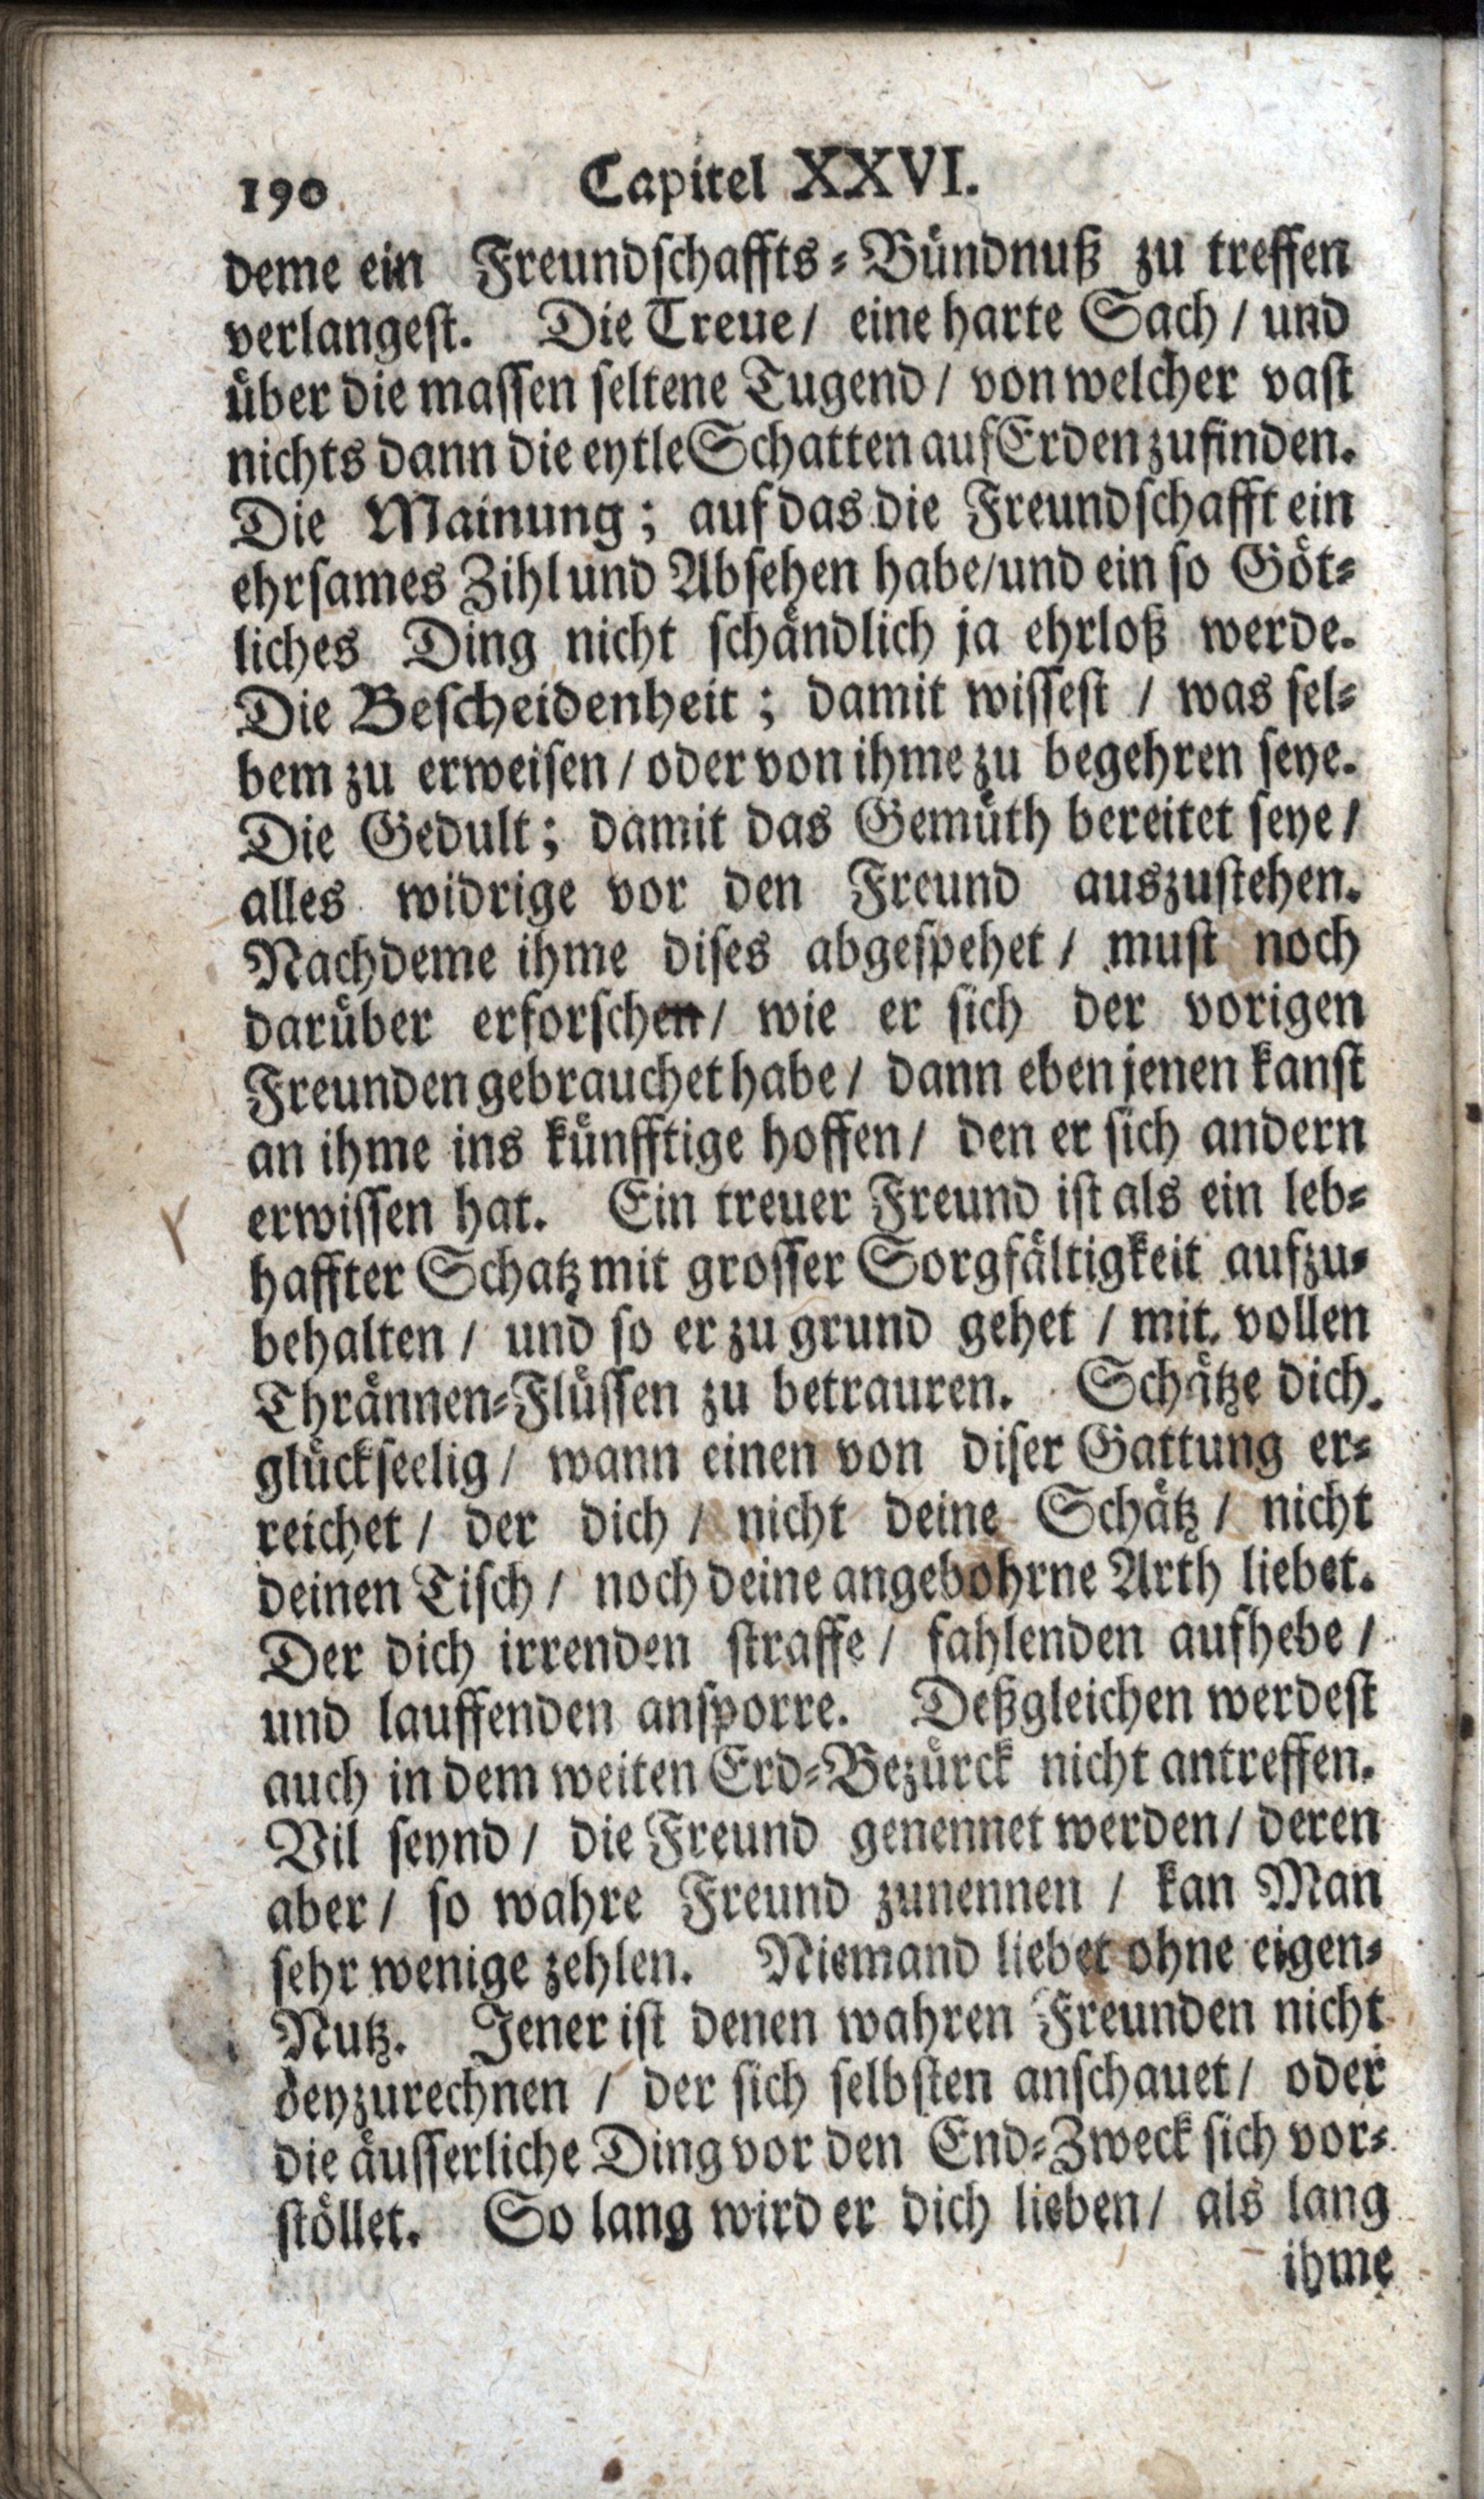 190 Capitel XXVI.
deme ein Freundschaffts-Bündnuß zu treffen
verlangest. Die Treue/ eine harte Sach / und
über die massen seltene Tugend / von welcher vast
nichts dann die eytle Schatten auf Erden zufinden.
Die Mainung; auf das die Freundschafft ein
ehrsames Zihl und Absehen habe/und ein so Göt-
liches Ding nicht schändlich ja ehrloß werde.
Die Bescheidenheit; damit wissest / was sel-
bem zu erweisen / oder von ihme zu begehren seye.
Die Gedult; damit das Gemüth bereitet seye /
alles widrige vor den Freund auszustehen.
Nachdeme ihme dises abgespehet / must noch
darüber erforschen/ wie er sich der vorigen
Freunden gebrauchet habe / dann eben jenen kanst
an ihme ins künfftige hoffen/ den er sich andern
erwissen hat. Ein treuer Freund ist als ein leb-
haffter Schatz mit grosser Sorgfältigkeit aufzu-
behalten / und so er zu grund gehet / mit vollen
Thrännen-Flüssen zu betrauren. Schätze dich
glückseelig / wann einen von diser Gattung er-
reichet / der dich / nicht deine Schätz / nicht
deinen Tisch / noch deine angebohrne Arth liebet.
Der dich irrenden straffe / fahlenden aufhebe /
und lauffenden ansporre. Deßgleichen werdest
auch in dem weiten Erd-Bezürck nicht antreffen.
Vil seynd / die Freund genennet werden / deren
aber / so wahre Freund zunennen / kan Man
sehr wenige zehlen. Niemand liebet ohne eigen-
Nutz. Jener ist denen wahren Freunden nicht
beyzurechnen / der sich selbsten anschauet / oder
die äusserliche Ding vor den End-Zweck sich vor-
stöllet. So lang wird er dich lieben / als lang
ihme